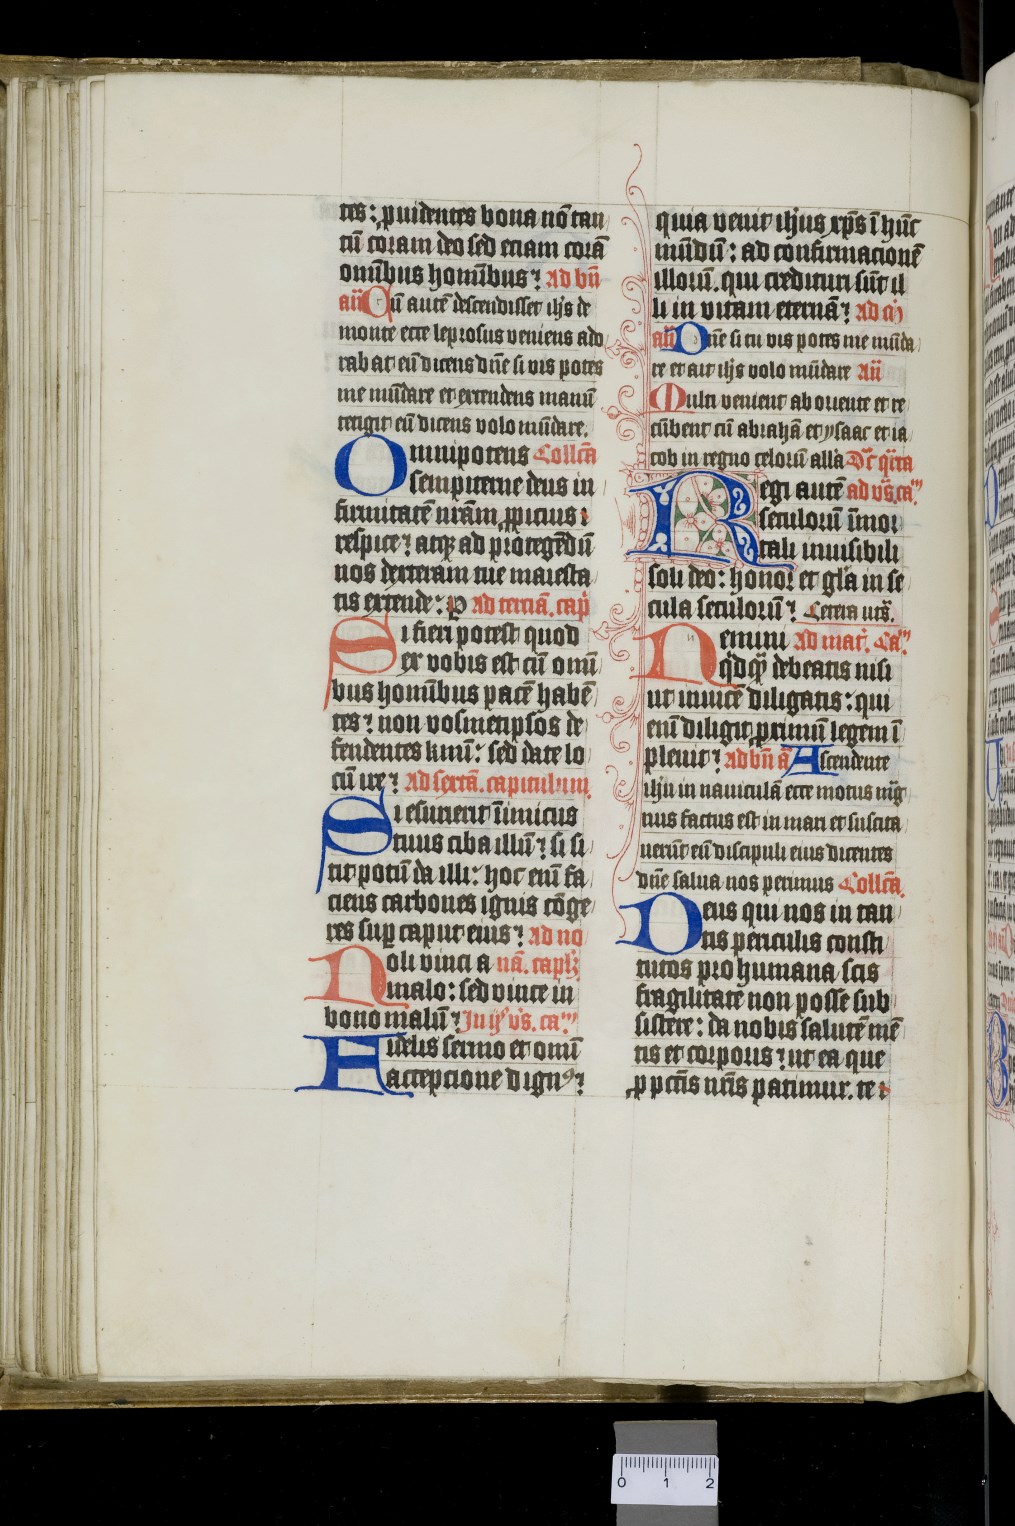 tes: ꝓuidentes bona nō tan
tū coram deo sed etiam corā
omībus hominībus⁊ Ad bn̄
an̄ Cū autē descendisset ih̄s de
monte ecce leprosus veniens ado
rabat eū dicens dn̄e si vis potes
me mūdare et extendens manū
tetigit eū dicens volo mūdare.
Omnipotens Collc̄a
sempiterne deus in
firmitatē nr̄am ꝓpicius
respice⁊ atqꝫ ad protegēdū
nos dexteram tue maiesta
tis extende: ꝑ Ad terciā. cap̄
Si fieri potest quod
ex vobis est cū omī
bus hominībus pacē habē
tes⁊ non vosmetipsos de
fendentes kmī: sed date lo
cū ire⁊ Ad sextā. capitulum.
Si esurierit īimicus
tuus ciba illū⁊ si si
tit potū da illi: hoc enī fa
ciens carbones ignis cōge
res suꝑ caput eius⁊ ad no
Noli vinci a nā. capl̄
malo: sed vince in
bono malū⁊ In ij° vs̄. ca.m
Fidelis sermo et omī
acceptione dignꝰ⁊
quia venit ih̄us xp̄s ī hūc
mūdū: ad confirmacionē
illorū. qui credituri sūt il
li in vitam eternā⁊ Ad
an̄ Dn̄e si tu vis potes me mūda
re et ait ih̄s volo mūdare An̄
Multi venient ab oriente et re
cūbent cū abrahā et ysaac et ia
cob in regno celorū all'a Dc̄ qr̄ta
Regi autē ad vs̄. ca.m
seculorū īmor
tali inuisibili
soli deo: honor et gl'a in se
cula seculorū⁊ Cetera uts̄.
Nemini Ad mat̄. Ca.m
qͥdqͣ debeatis nisi
ut inuicē diligatis: qui
enī diligit ꝓximū legem ī
pleuit⁊ ad bn̄ ā Ascendente
ih̄u in nauiculā ecce motus mag
nus factus est in mari et suscita
uerūt eū discipuli eius dicentes
dn̄e salua nos perimus Collc̄a.
Deus qui nos in tan
tis periculis consti
tutos pro humana scis
fragilitate non posse sub
sistere: da nobis salutē mē
tis et corporis⁊ ut ea que
ꝓ pctīs nr̄is patimur. te